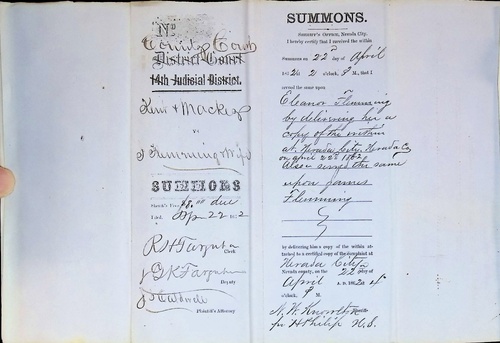 No
County Court
District Court
14th Judicial District.
Kim & Mackey
vs
J Flemming & Wife
SUMMONS
Sheriff's Fees $8.00 due
Filed, Apr 22 1862
R H Farquhar
Clerk
G K Farquhar
Deputy
J Caldwell
Plaintiff's Attorney
SUMMONS.
SHERIFF'S OFFICE, Nevada City.
I hereby certify that I received the within
Summons on 22d day of April
1862 at 2 o'clock, P M., that I
served the same upon
Eleanor Flemming
by delivering her a
copy of the within
at Nevada City, Nevada Co
on april 22d 1862
Also served the same
upon James
Flemming
by delivering him a copy of the within at-
tached to a certified copy of the complaint at
Nevada City in
Nevada county, on the 22 day of
April A. D. 1862 at 4
o'clock, P M.
N. W. Knowlton Sheriff
pr H Philip U.S.